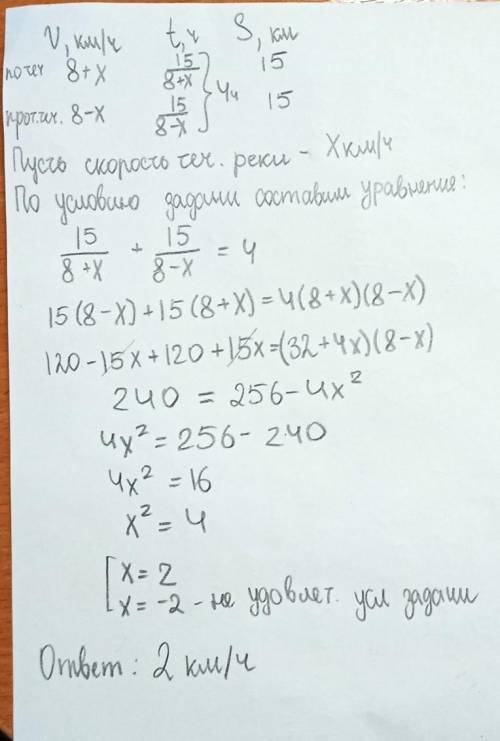 V, км/ч t, ч S, км
по теч 8+x 15/(8+x) 15
4ч
прот.теч. 8-x 15/(8-x) 15
Пусть скорость теч. реки - x км/ч
По условию задачи составим уравнение:
15/(8+x) + 15/(8-x) = 4
15(8-x)+15(8+x)=4(8+x)(8-x)
120-15x+120+15x=(32+4x)(8-x)
240 = 256-4x²
4x²=256-240
4x²=16
x²=4
[x=2
x=-2 - не удовлет. усл задачи
Ответ: 2 км/ч